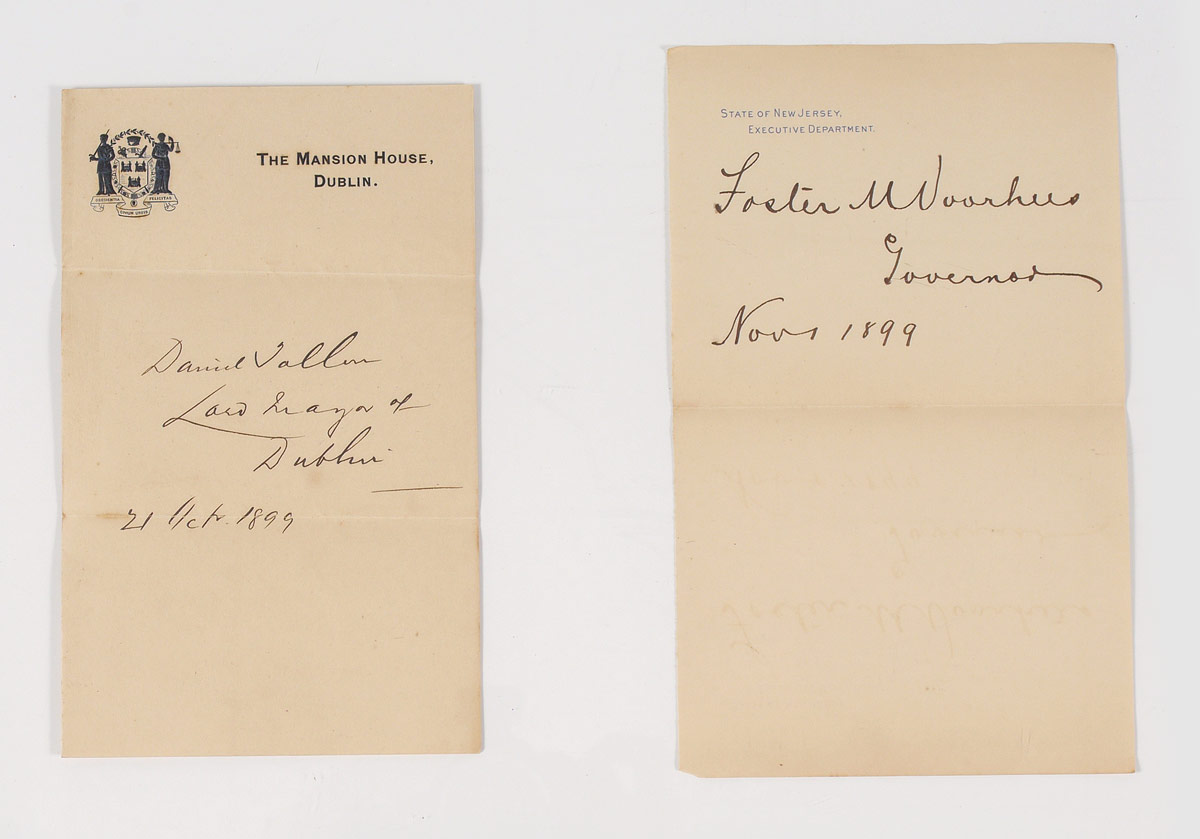 THE MANSION HOUSE,
DUBLIN.
OBEDIENTIA
FELICITAS
Daniel Tallon
Lord Mayor of
Dublin
21 Octr. 1899
STATE OF NEW JERSEY,
EXECUTIVE DEPARTMENT.
Foster M Voorhees
Governor
Nov 1 1899